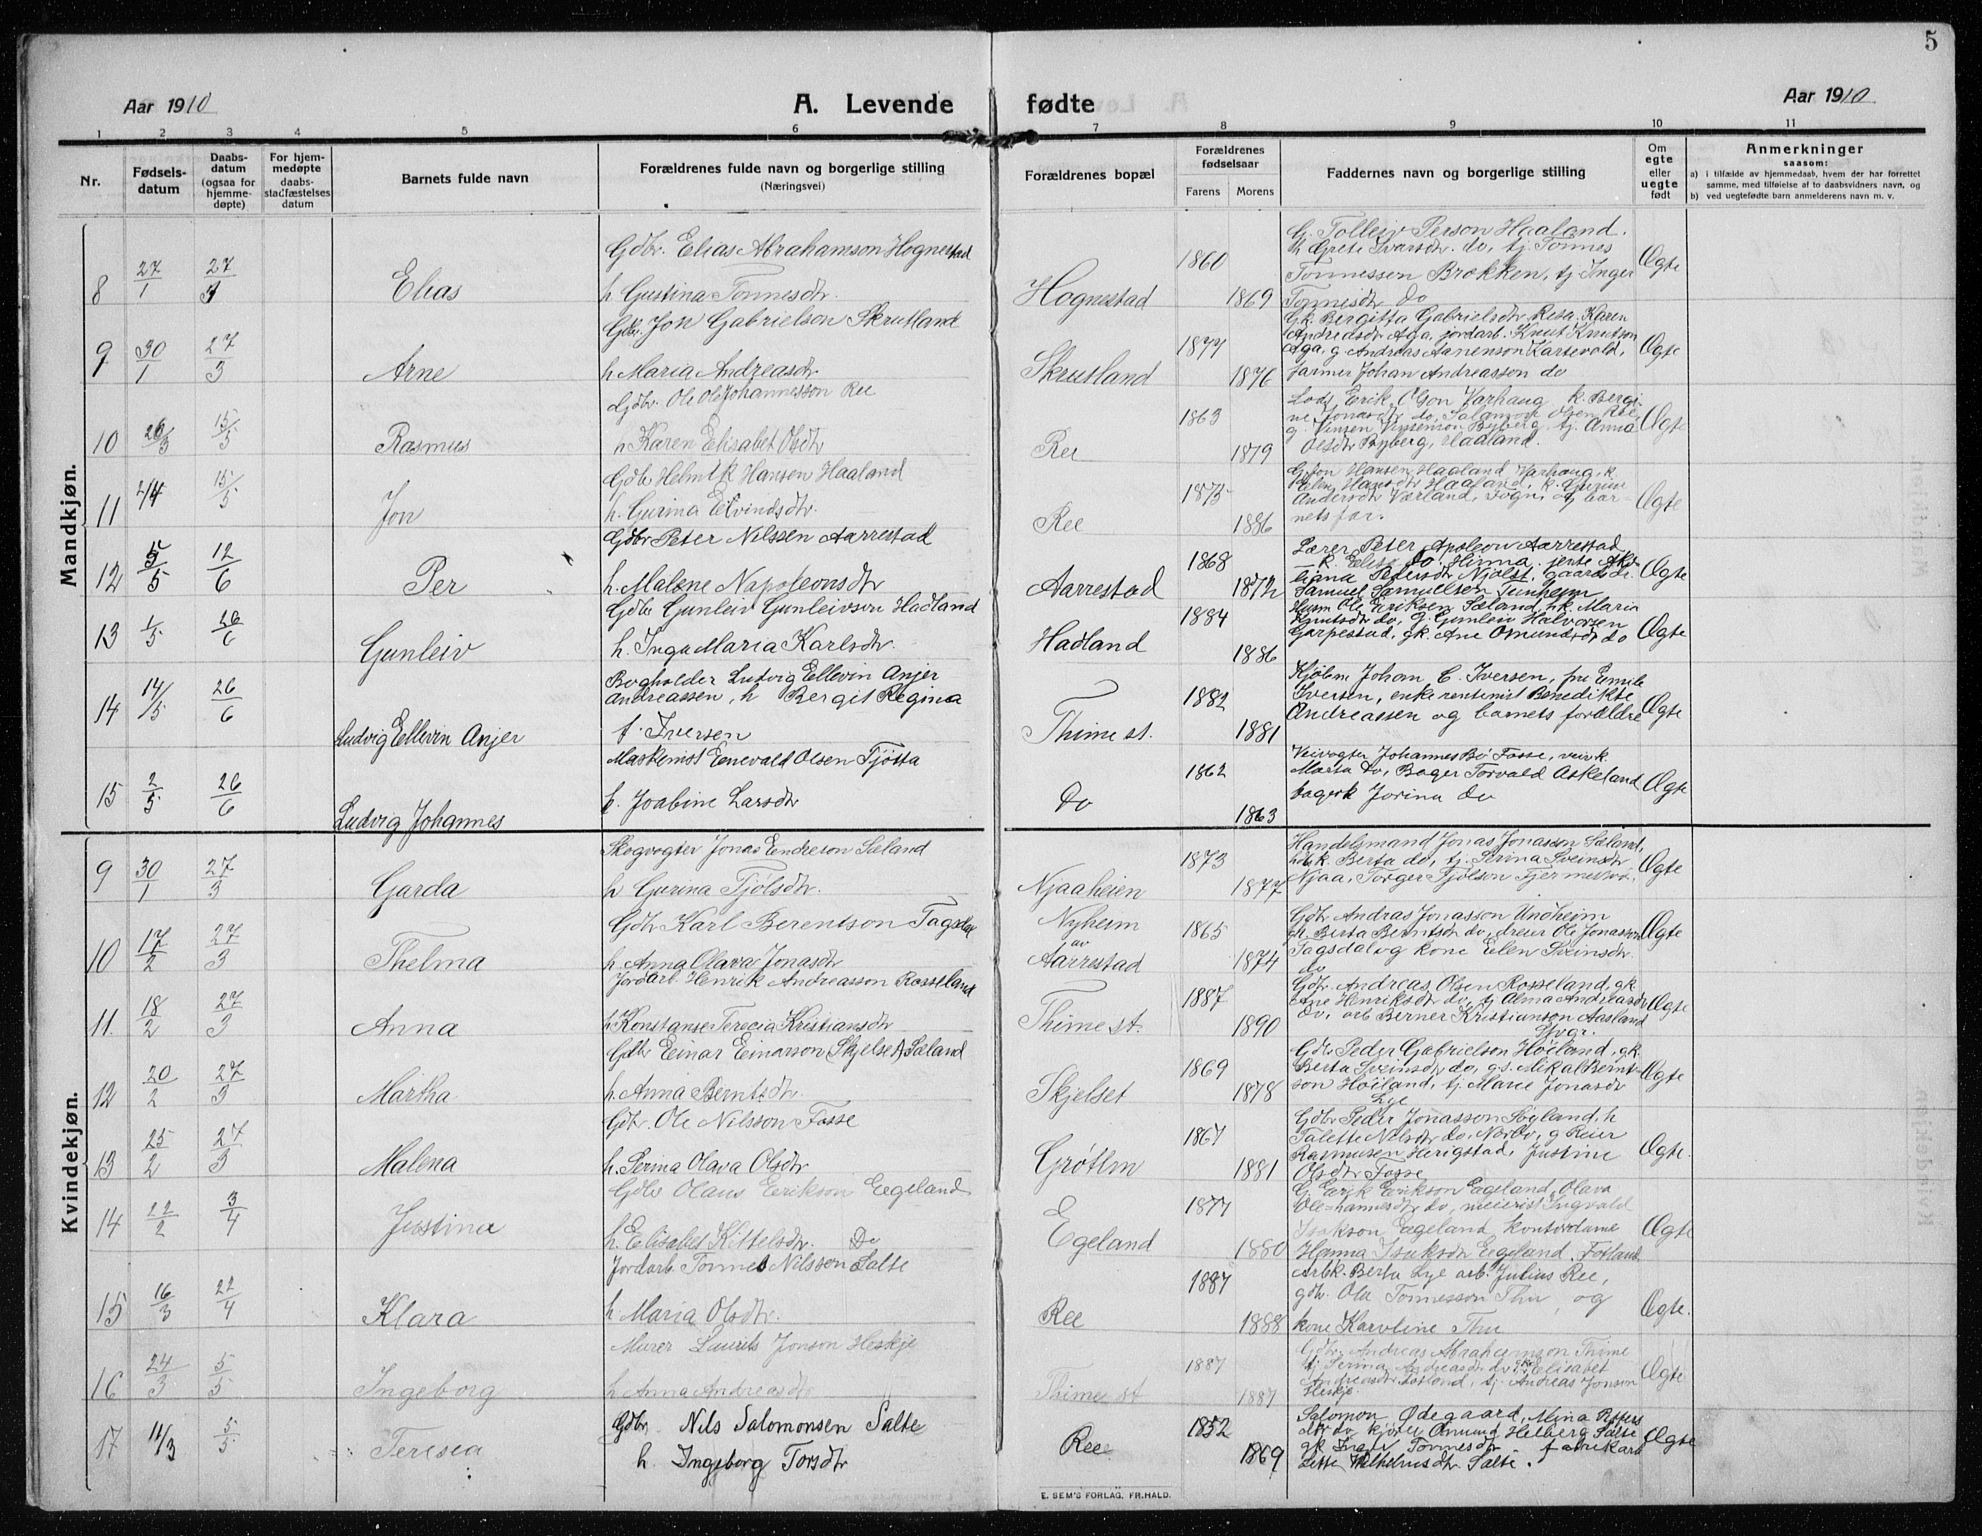 5
Aar 1910
A. Levende fødte
Aar 1910
1 2 3 4 5 6 7 8 9 10 11
Nr.
Fødsels-
datum
Daabs-
datum
(ogsaa for
hjemme-
døpte)
For hjem-
medøpte
daabs-
stadfæstelses
datum
Barnets fulde navn
Forældrenes fulde navn og borgerlige stilling
(Næringsvei)
Forældrenes bopæl
Forældrenes
fødselsaar
Farens Morens
Faddernes navn og borgerlige stilling
Om
egte
eller
uegte
født
Anmerkninger
saasom:
a) i tilfælde av hjemmedaab, hvem der har forrettet
samme, med tilføielse af to daabsvidners navn, og
b) ved uegtefødte barn anmelderens navn m. v.
Mandkjøn.
8 27/1 27/3 Elias
Gdbr. Elias Abrahamson Hognestad
h Gustina Tønnesdtr.
Hognestad 1860 1869
G. Tolleiv Person Haaland.
h Grete Ivarsdtr. do, tj. Tønnes
Tønnessen Brokken, tj Inger
Tønnesdtr do
Ægte
9 30/1 27/3 Arne
Gdbr. Jon Gabrielson Skrutland
h Maria Andreasdtr
Skrutland 1877 1876
Gk. Bergitta Gabrielsdtr Resa. Karen
Andreasdtr Aga, jordarb. Knut Knutson
Aga, g Andreas Aanenson Kartevold,
farmer Johan Andreasson do
Ægte
10 26/3 15/5 Rasmus
Gdbr. Ole Ole Johannesson Ree
h Karen Elisabet Olsdtr
Ree 1863 1879
Lods Erik Olson Varhaug k. Bergi-
ne Jonasdtr do, Salamon Olsen Ree
g. Vinsen Vinsenson Byberg, tj. Anna
Olsdtr Byberg, Haaland.
Ægte
11 2/4 15/5 Jon
Gdbr Helmik Hansen Haaland
h. Gurina Eivindsdtr.
Ree 1873 1886
G. Jon Hansen Haaland Varhaug, k.
Elen Hansdtr Haaland, k. Gurine
Andersdtr Værland, Sogni og bar-
nets far.
Ægte
12 5/5 12/6 Per
Gdbr Peter Nilssen Aarrestad
h. Malene Napoleonsdtr
Aarrestad 1868 1872
Lærer Peter Apoleon Aarrestad
— k. Elise do. Hirma jente
Pedersdtr Njølst, gaards
Samuel Samuelson Tunheim
Ægte
13 1/5 26/6 Gunleiv
Gdbr Gunleiv Gunleivson Hadland
h. Inga Maria Karlsdtr.
Hadland 1884 1886
Husm Ole Eriksen Sæland, hk. Maria
Knutsdtr do, G. Gunleiv Halvorsen
Garpestad, gk. Ane Osmundsdtr do
Ægte
14 14/5 26/6 Ludvig Ellevin Anjer
Bogholder Ludvig Ellevin Anjer
Andreassen, h Bergit Regina
f. Iversen
Thime st. 1882 1881
Kjøbm Johan C. Iversen, fru Emile
Iversen, enke rentenist Benedikte
Andreassen og barnets forældre
Ægte
15 2/5 26/6 Ludvig Johannes
Maskinist Enevald Olsen Tjøtta
h. Joabine Larsdtr
Do 1862 1863
Veivogter Johannes Bø Fosse, veivk
Marta do, Bager Torvald Askeland
bagerk Jorina do
Ægte
Kvindekjøn.
9 30/1 27/3 Garda
Skogvogter Jonas Endreson Sæland
h Gurina Tjølsdtr.
Njaaheien 1873 1877
Handelsmand Jonas Jonasson Sæland,
hdlk. Berta do, tj. Serina Sveinsdtr
Njaa, Torger Tjølson Tjermestvø.
Ægte
10 17/2 27/3 Thelma
Gdbr Karl Berentson Tagsdal
h. Anna Olava Jonasdtr
Nyheim
av
Aarrestad 1865 1874
Gdbr Andras Jonasson Undheim
gk. Berta Berntsdtr do, dreier Ole Jonasson
Tagsdal og kone Elen Sveinsdtr
do
Ægte
11. 18/2 27/3 Anna
Jordarb. Henrik Andreasson Rosseland
h Konstanse Terecia Kristiansdtr
Thime st. 1887 1890
Gdbr. Andreas Olsen Rosseland, gk
Ane Henriksdtr do, tj Alma Andreasdtr
do, arb Berner Kristianson Aasland
Stvgr.
Ægte
12 20/2 27/3 Martha
Gdbr Einar Einarson (Skjelset) Sæland
h. Anna Berntsdtr.
Skjelset 1869 1878
Gdbr Peder Gabrielson Høiland, gk.
Berta Sveinsdtr do, gs. Mikal Bernt-
son Høiland, tj. Marie Jonasdtr
Lye
Ægte
13 25/2 27/3 Malena
Gdbr. Ole Nilsson Fosse
h. Serina Olava Olsdtr
Grøtlin 1867 1881
Gdbr Peder Jonasson Søyland, h
Talette Nilsdtr do, Nærbø, g Reier
Rasmussen Herigstad, Justine
Olsdtr Fosse
Ægte.
14 22/2 3/4 Justina
Gdbr Olaus Erikson Eegeland
h. Elisabet Kittelsdtr. Do
Egeland 1877 1880
G. Erik Erikson Egeland, Olava
Ole-hannesdtr do, meierist Ingvald
Isakson Egeland, kontordame
Hanna Isaksdtr Egeland. Fotland
Ægte
15 16/3 22/4 Klara
Jordarb. Tønnes Nilsson Salte
h. Maria Olsdtr.
Ree 1887 1888
Arbk. Berta Lye arb. Julius Ree,
gdbr. Ola Tønnesson Thu, og
kone Karoline Thu
Ægte.
16 24/3 5/5 Ingeborg
Murer Laurits Jonson Heskje
h Anna Andreasdtr
Thime st 1887 1887
Gdbr. Andreas Abrahamson Thime
tj. Serina Andreasdtr do, Elisabet
Andreasdtr Fotland, tj. Andreas Jonson
Heskje
Ægte
17 11/3 5/5 Teresia
Gdbr. Nils Salomonsen Salte
h. Ingeborg Torsdtr
Ree 1852 1869
Salomon Ødegaard, Mina Peters
dtr do kjører Omund Helberg Salte
gk Inger Tønnesdtr. fabrikarb
Lette Vilhelmsdtr Salte.
Ægte
E. SEM'S FORLAG, FR.HALD.